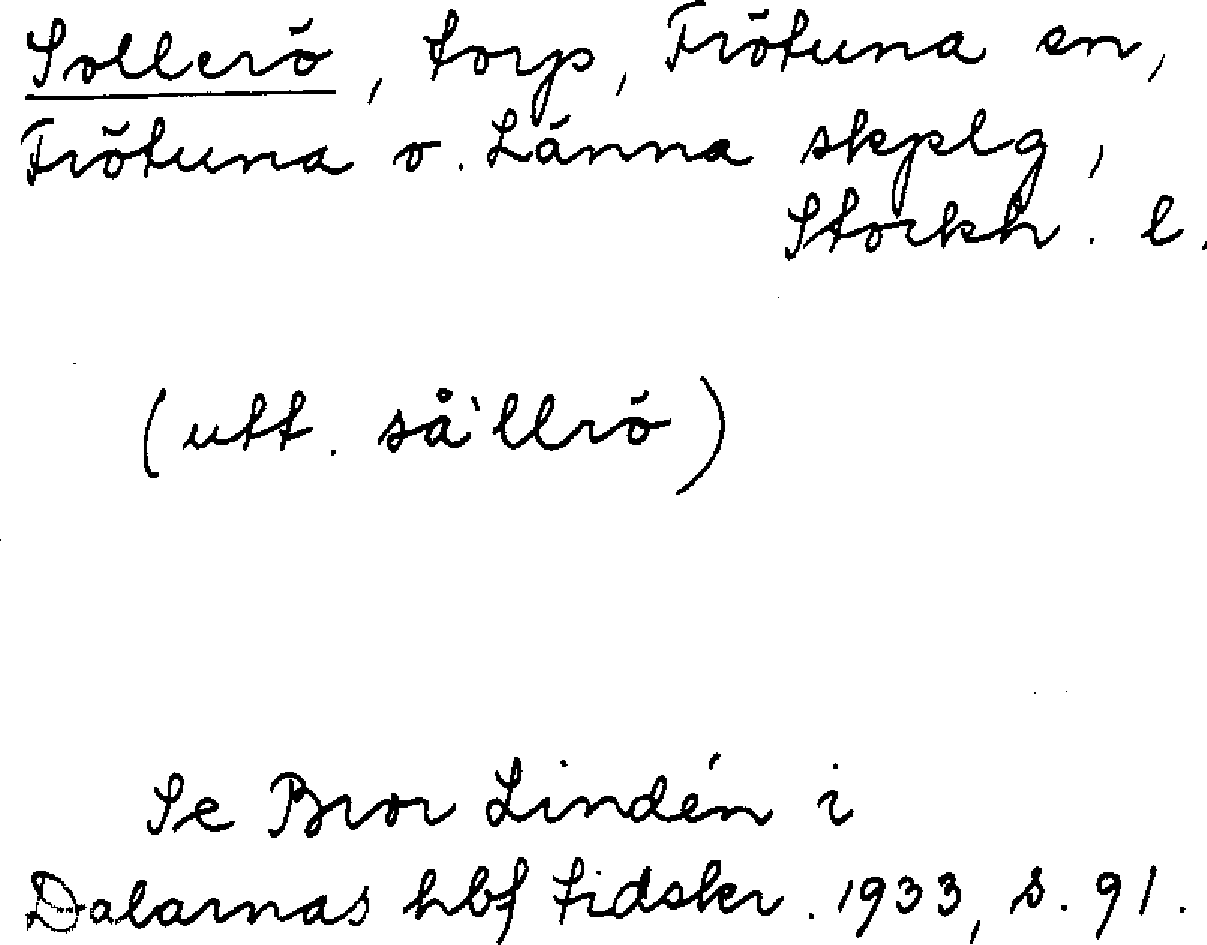 Sollerö, torp, Frötuna sn,
Frötuna o. Länna skplg,
Stockh. l.
(utt. så`llrö)
Se Bror Lindén i
Dalarnas hbf tidskr. 1933, s. 91.